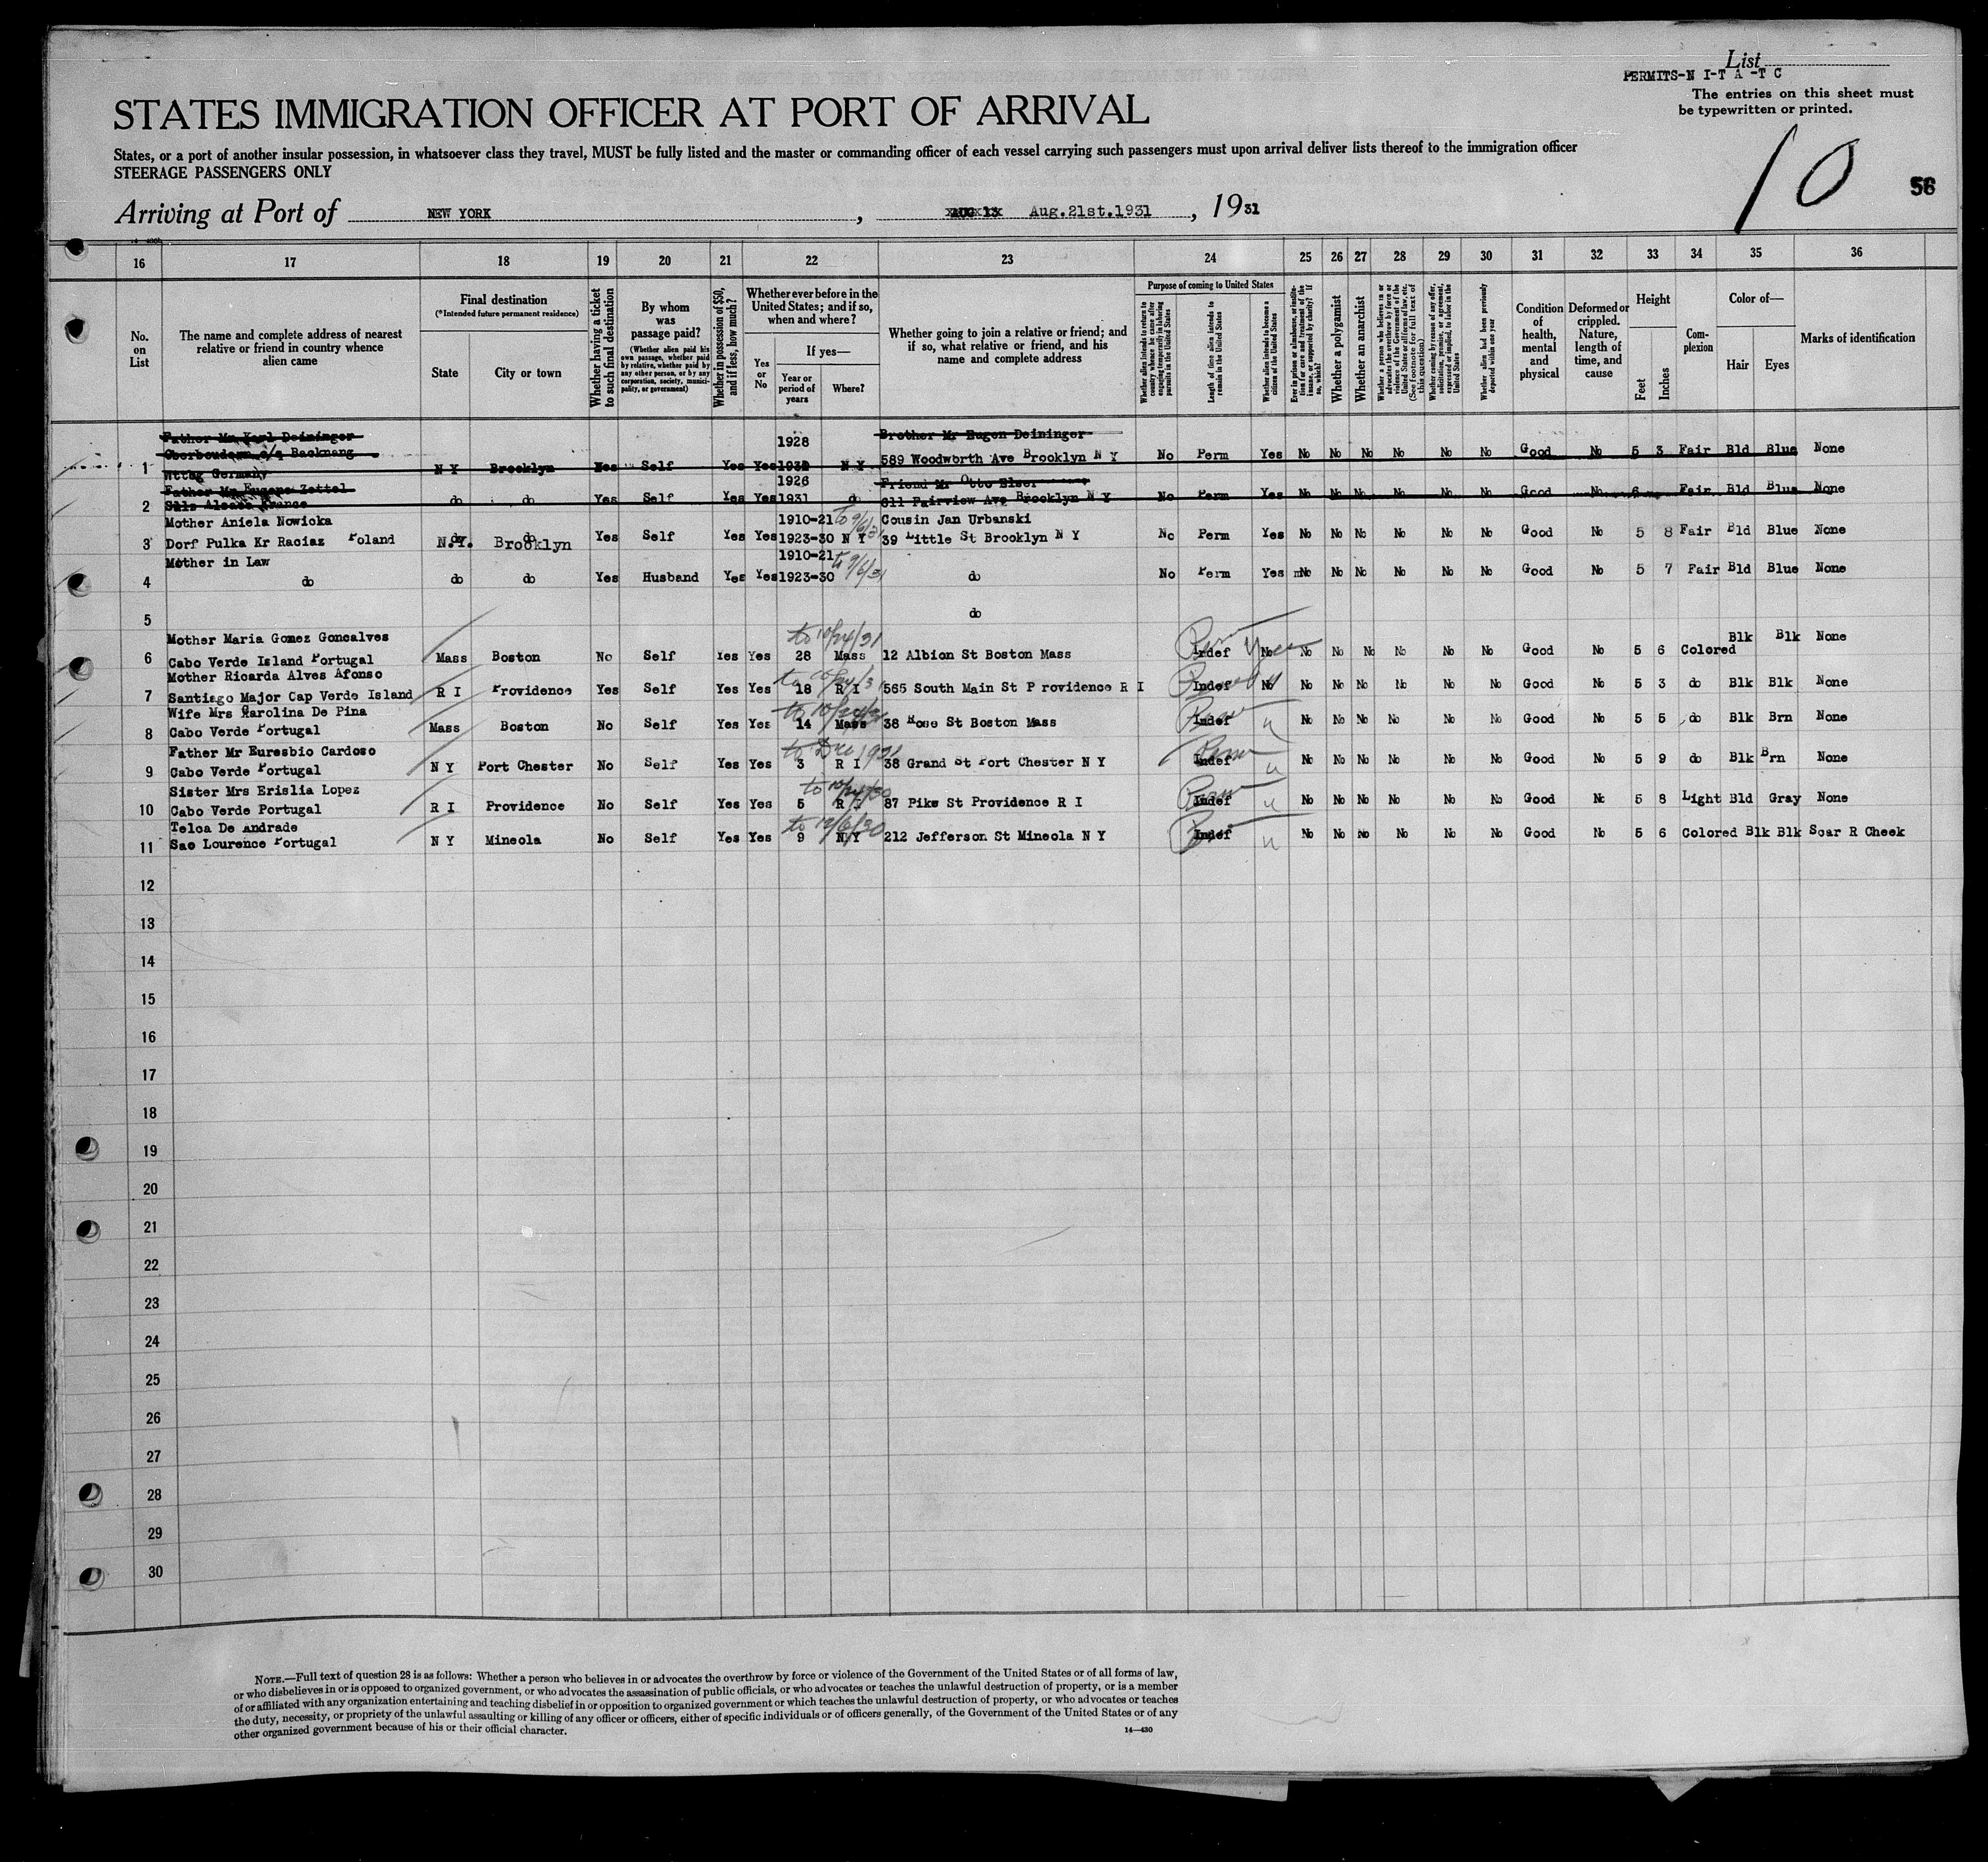 List
PERMITS-N I-T A -T C
The entries on this sheet must
be typewritten or printed.
STATES IMMIGRATION OFFICER AT PORT OF ARRIVAL
States, or a port of another insular possession, in whatsoever class they travel, MUST be fully listed and the master or commanding officer of each vessel carrying such passengers must upon arrival deliver lists thereof to the immigration officer
STEERAGE PASSENGERS ONLY
10
56
Arriving at Port of NEW YORK , Aug.21st.1931 , 1931
16 17 18 19 20 21 22 23 24 25 26 27 28 29 30 31 32 33 34 35 36
No. on List
The name and complete address of nearest relative or friend in country whence alien came
Final destination
(*Intended future permanent residence)
State
City or town
Whether having a ticket to such final destination
By whom was passage paid?
(Whether alien paid his own passage, whether paid by relative, whether paid by any other person, or by any corporation, society, municipality, or government)
Whether in possession of $50, and if less, how much?
Whether ever before in the United States; and if so, when and where?
Yes or No
If yes—
Year or period of years
Where?
Whether going to join a relative or friend; and if so, what relative or friend, and his name and complete address
Purpose of coming to United States
Whether alien intends to return to country whence he came after engaging temporarily in laboring pursuits in the United States
Length of time alien intends to remain in the United States
Whether alien intends to become a citizen of the United States
Ever in prison or almshouse, or institution for care and treatment of the insane, or supported by charity? If so, which?
Whether a polygamist
Whether an anarchist
Whether a person who believes in or advocates the overthrow by force or violence of the Government of the United States or all forms of law, etc. (See footnote for full text of this question)
Whether coming by reason of any offer, solicitation, promise, or agreement, expressed or implied, to labor in the United States
Whether alien had been previously deported within one year
Condition of health, mental and physical
Deformed or crippled. Nature, length of time, and cause
Height
Feet
Inches
Complexion
Color of—
Hair
Eyes
Marks of identification
Father Mr Karl Deininger 1928 Brother Mr Eugen Deininger
1 Backnang N Y Brooklyn Yes Self Yes Yes N Y 589 Woodworth Ave Brooklyn N Y No Perm Yes No No No No No No Good No 5 3 Fair Bld Blue None
Wttbg Germany
Father Mr Eugene Zettel 1926 Friend Mr Otto Elser
2 France do do Yes Self Yes Yes 1931 do 611 Fairview Ave Brooklyn N Y No Perm Yes No No No No No No Good No Fair Bld Blue None
Mother Aniela Nowicka 1910-21 to 9/6/31 Cousin Jan Urbanski
3 Dorf Pulka Kr Raciaz Poland N.Y. Brooklyn Yes Self Yes Yes 1923-30 N Y 39 Little St Brooklyn N Y No Perm Yes No No No No No No Good No 5 8 Fair Bld Blue None
Mother in Law 1910-21 to 9/6/31
4 do do do Yes Husband Yes Yes 1923-30 do No Perm Yes No No No No No No Good No 5 7 Fair Bld Blue None
5 do
Mother Maria Gomez Goncalves to 10/24/31 Perm Yes
6 Cabo Verde Island Portugal Mass Boston No Self Yes Yes 28 Mass 12 Albion St Boston Mass Indef No No No No No No No Good No 5 6 Colored Blk Blk None
Mother Ricarda Alves Afonso
7 Santiago Major Cap Verde Island R I Providence Yes Self Yes Yes 18 R I 565 South Main St Providence R I Indef No No No No No No No Good No 5 3 do Blk Blk None
Wife Mrs Carolina De Pina
8 Cabo Verde Portugal Mass Boston No Self Yes Yes 14 Mass 38 Hose St Boston Mass Indef " No No No No No No Good No 5 5 do Blk Brn None
Father Mr Euresbio Cardoso to Dec 1931 Perm
9 Cabo Verde Portugal N Y Port Chester No Self Yes Yes 3 R I 38 Grand St Port Chester N Y Indef " No No No No No No Good No 5 9 do Blk Brn None
Sister Mrs Erislia Lopez
10 Cabo Verde Portugal R I Providence No Self Yes Yes 5 R I 87 Pike St Providence R I Indef " No No No No No No Good No 5 8 Light Bld Gray None
Teloa De Andrade to 12/6/30
11 Sao Lourence Portugal N Y Mineola No Self Yes Yes 9 N Y 212 Jefferson St Mineola N Y Indef " No No No No No No Good No 5 6 Colored Blk Blk Scar R Cheek
12
13
14
15
16
17
18
19
20
21
22
23
24
25
26
27
28
29
30
NOTE.—Full text of question 28 is as follows: Whether a person who believes in or advocates the overthrow by force or violence of the Government of the United States or of all forms of law,
or who disbelieves in or is opposed to organized government, or who advocates the assassination of public officials, or who advocates or teaches the unlawful destruction of property, or is a member
of or affiliated with any organization entertaining and teaching disbelief in or opposition to organized government or which teaches the unlawful destruction of property, or who advocates or teaches
the duty, necessity, or propriety of the unlawful assaulting or killing of any officer or officers, either of specific individuals or of officers generally, of the Government of the United States or of any
other organized government because of his or their official character.
14—430